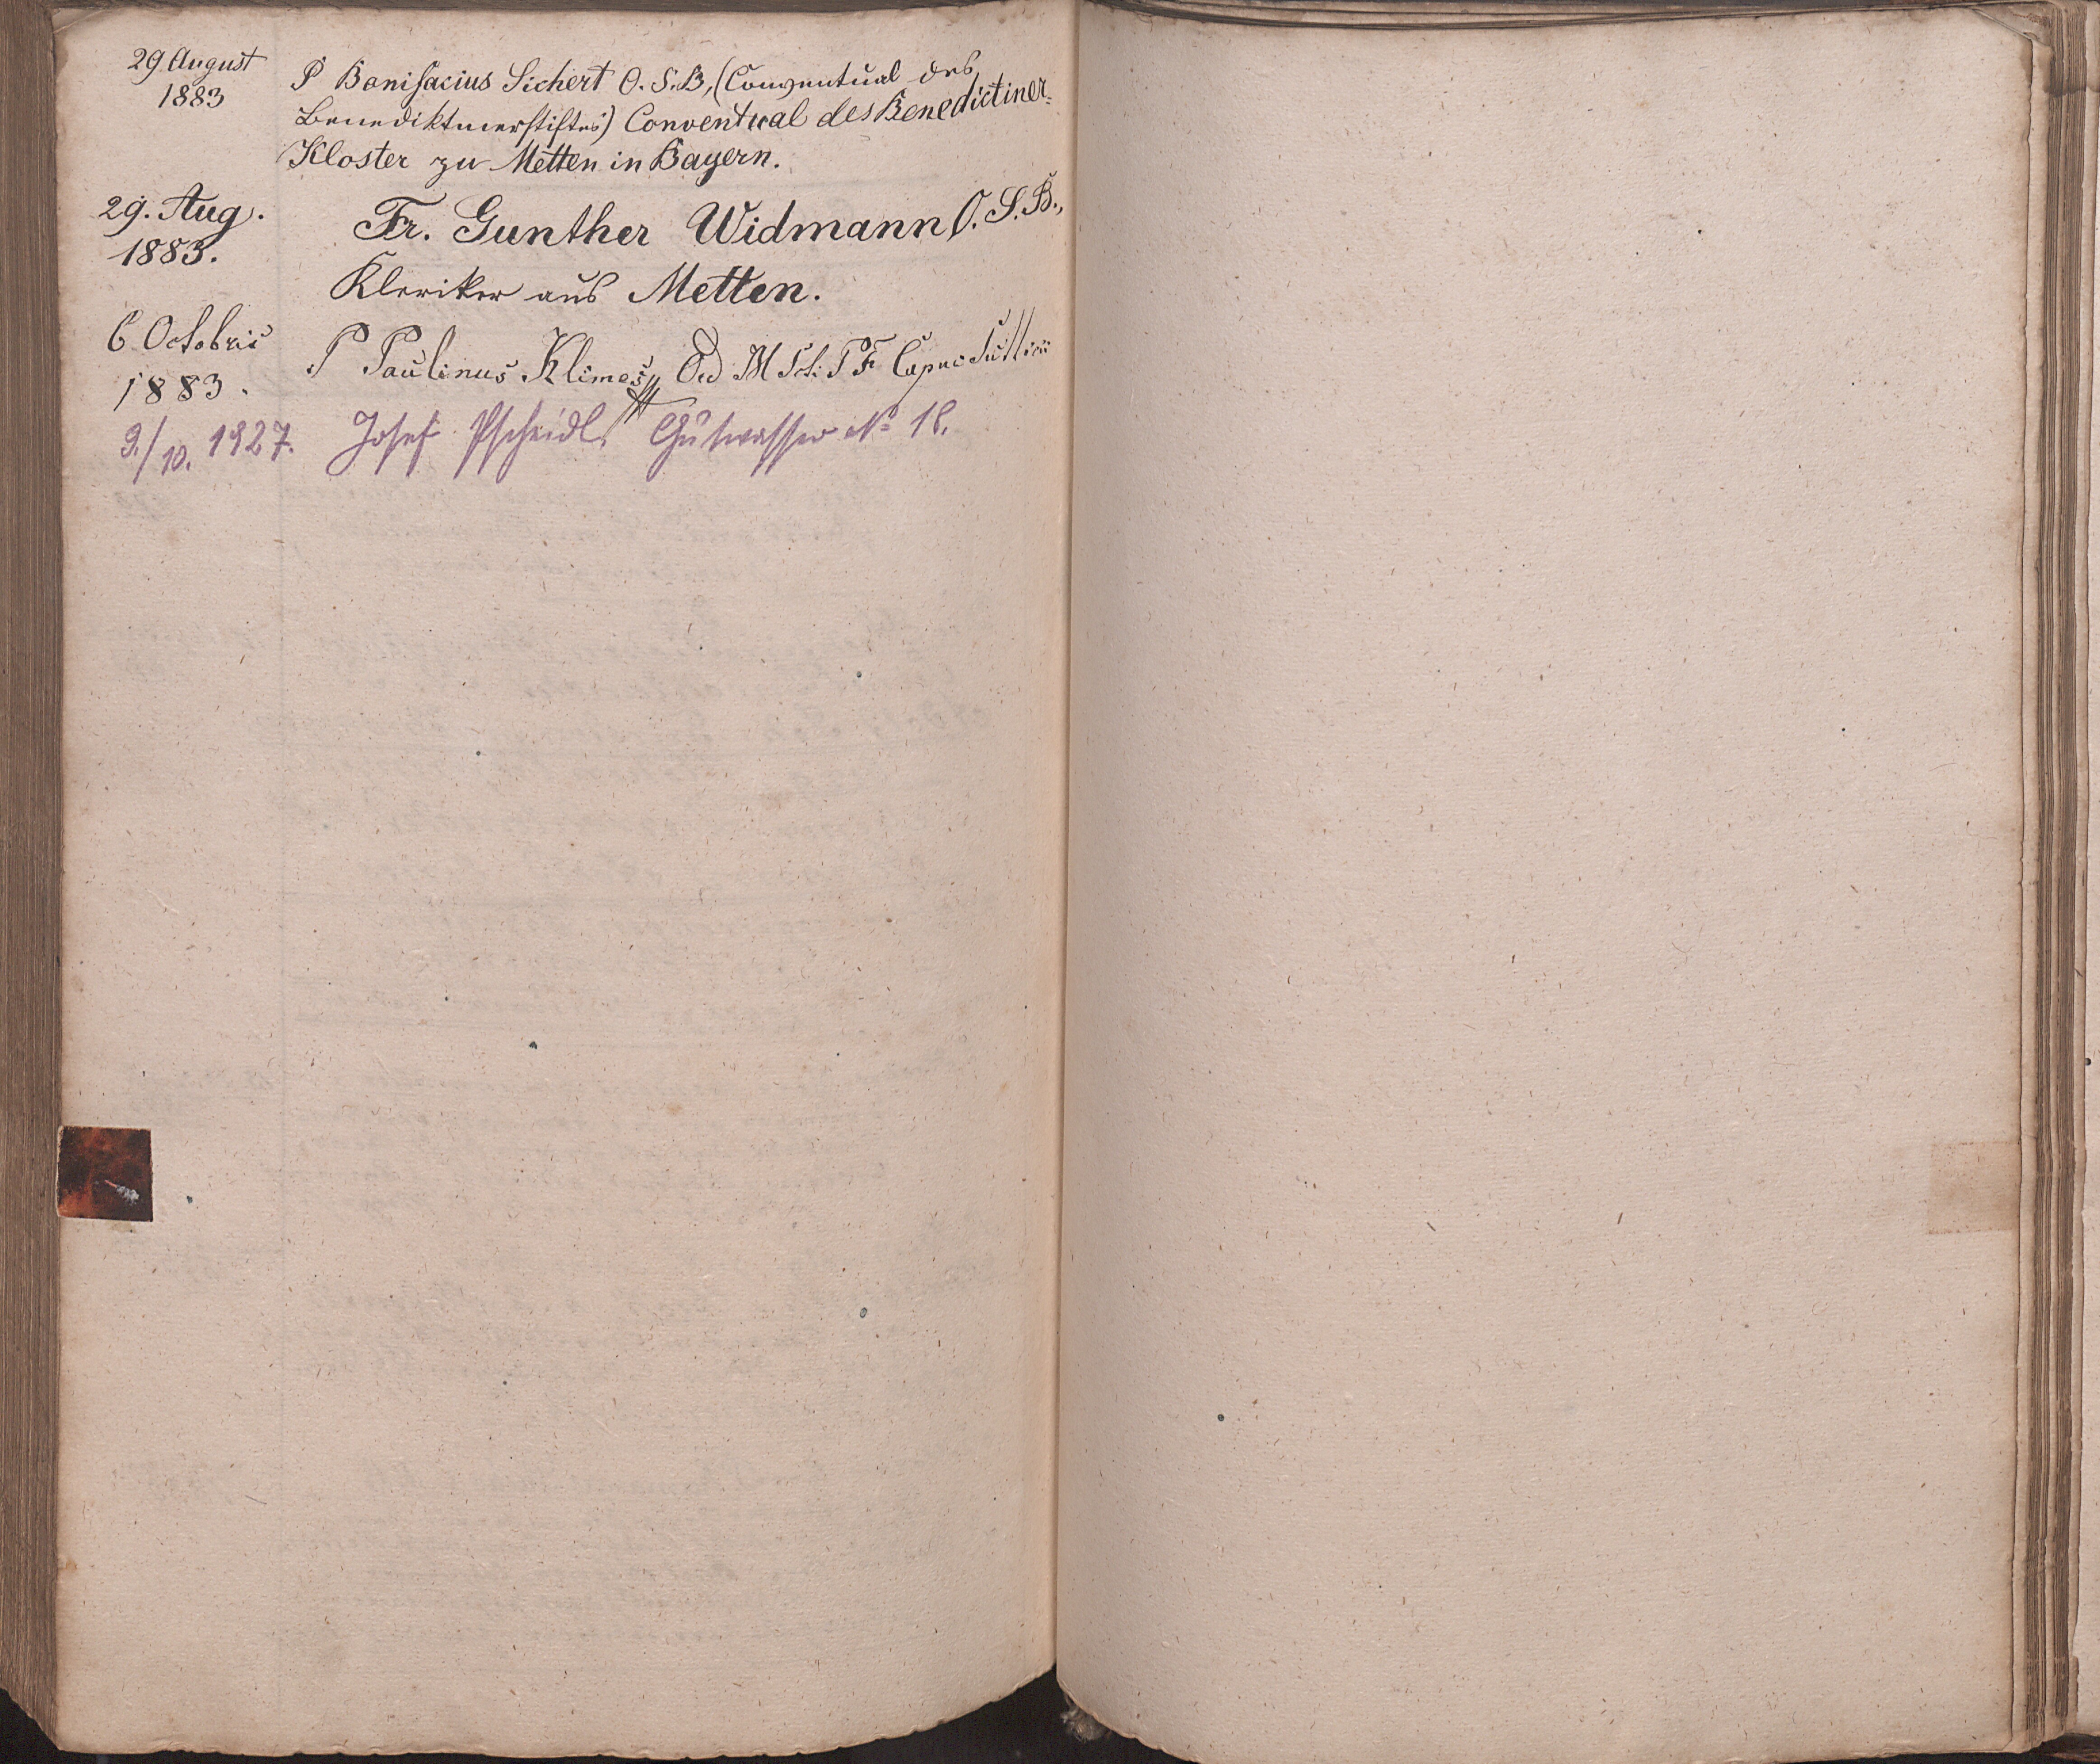 29 August P Bonifacius Sichert O.S.B, (Conventual des
1883 Benediktinerstiftes) Conventual des Benedictiner-
Kloster zu Metten in Bayern.
29. Aug. Fr. Gunther Widmann O.S.B.,
1883. Kleriker aus Metten.
6 Octobris P Paulinus Klimesz Ord M Scti P F
1883.
9./10. 1927. Josef Pscheidl, Gutwasser No 18.